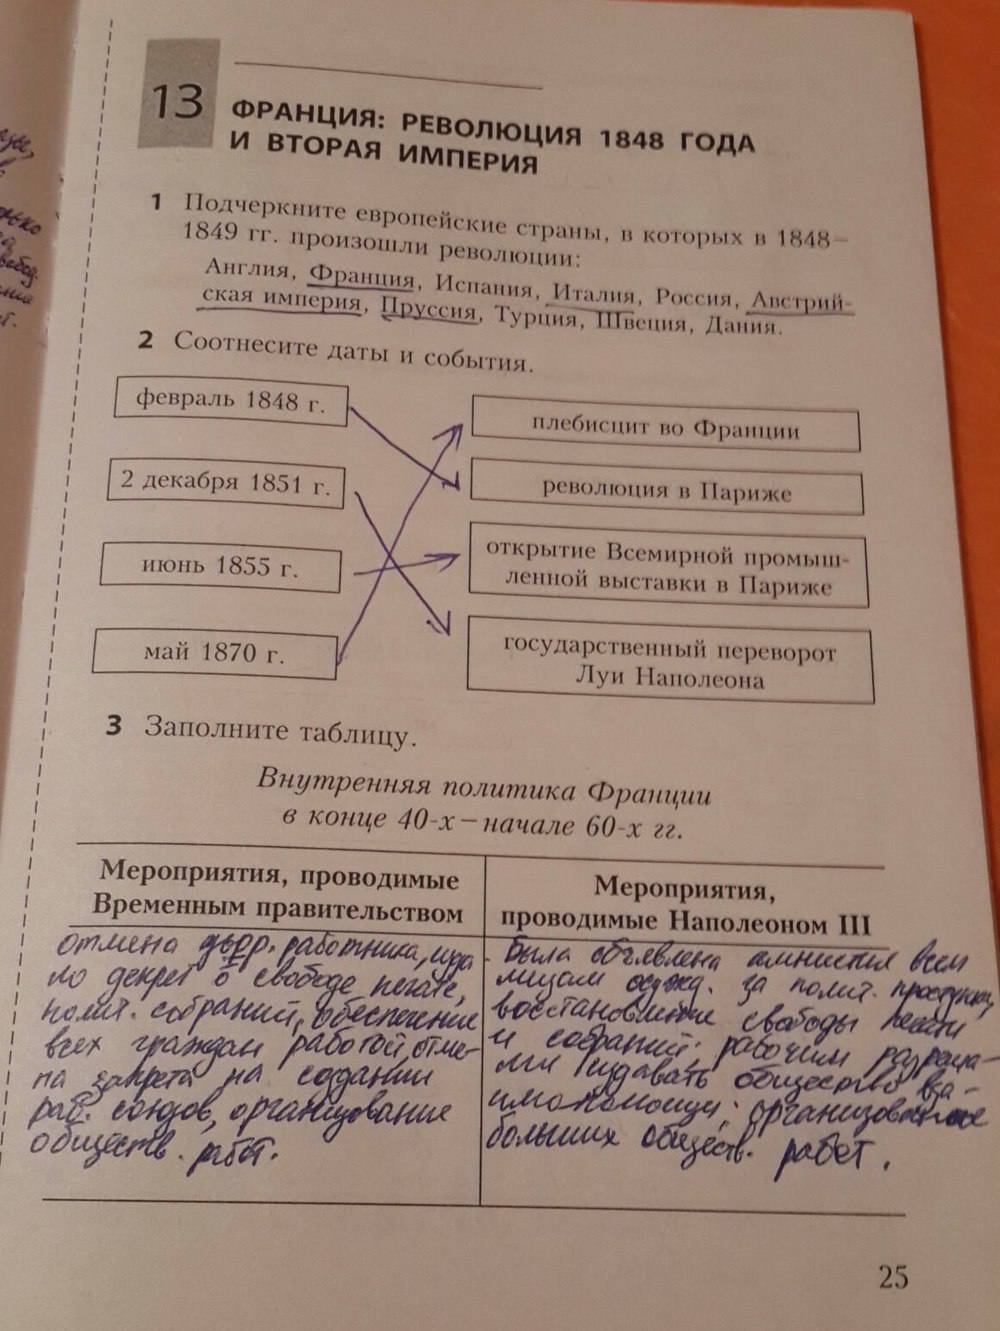 13
ФРАНЦИЯ: РЕВОЛЮЦИЯ 1848 ГОДА
И ВТОРАЯ ИМПЕРИЯ
1 Подчеркните европейские страны, в которых в 1848–
1849 гг. произошли революции:
Англия, Франция, Испания, Италия, Россия, Австрий-
ская империя, Пруссия, Турция, Швеция, Дания.
2 Соотнесите даты и события.
февраль 1848 г.
2 декабря 1851 г.
июнь 1855 г.
май 1870 г.
плебисцит во Франции
революция в Париже
открытие Всемирной промыш-
ленной выставки в Париже
государственный переворот
Луи Наполеона
3 Заполните таблицу.
Внутренняя политика Франции
в конце 40-х – начале 60-х гг.
Мероприятия, проводимые
Временным правительством
отмена двор. работника, изда
ло декрет о свободе печати,
полит. собраний, обеспечение
всех граждан работой, отме-
на запрета на создании
раб. союзов, организование
обществ. работ.
Мероприятия,
проводимые Наполеоном III
Была объявлена амнистия всем
лицам осужд. за полит. проступки,
восстановление свободы печати
и собраний. рабочим разреша-
ли издавать общество вза-
имопомощи; организование
больших обществ. работ.
25